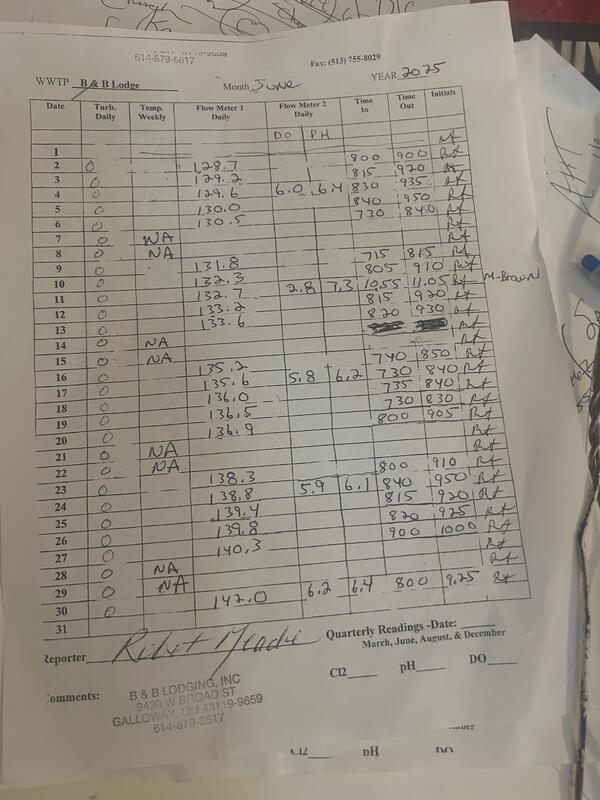 614-879-6617
Fax: (513) 755-8029
WWTP B & B Lodge Month June YEAR 2025
Date Turb. Daily Temp. Weekly Flow Meter 1 Daily Flow Meter 2 Daily Time In Time Out Initials
DO PH
1 Rt
2 0 128.7 800 900 Rt
3 0 129.2 815 920 Rt
4 0 129.6 6.0 6.4 830 935 Rt
5 0 130.0 840 950 Rt
6 0 130.5 730 840 Rt
7 0 NA Rt
8 0 NA Rt
9 0 131.8 715 815 Rt
10 0 132.3 805 910 Rt
11 0 132.7 2.8 7.3 10.55 11.05 Rt M-Brown
12 0 133.2 815 920 Rt
13 0 133.6 820 930 Rt
14 0 NA Rt
15 0 NA Rt
16 0 135.2 740 850 Rt
17 0 135.6 5.8 6.2 730 840 Rt
18 0 136.0 735 840 Rt
19 0 136.5 730 830 Rt
20 0 136.9 800 905 Rt
21 0 NA Rt
22 0 NA Rt
23 0 138.3 800 910 Rt
24 0 138.8 5.9 6.1 840 950 Rt
25 0 139.4 815 920 Rt
26 0 139.8 820 925 Rt
27 0 140.3 900 1000 Rt
28 0 NA Rt
29 0 NA Rt
30 0 142.0 6.2 6.4 800 9.25 Rt
31
Reporter
Quarterly Readings -Date:
March, June, August, & December
Cl2 pH DO
Comments: B & B LODGING, INC
9420 W BROAD ST
GALLOWAY, OH 43119-9659
614-879-6517
Cl2 pH DO